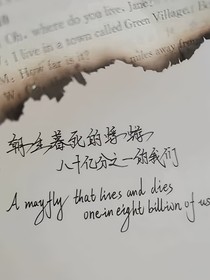 Oh, where do you live, Jane?
W: I live in a town called Green Village.
M: How far is it?
miles away from
朝生暮死的蜉蝣
八十亿分之一的我们
A mayfly that lives and dies
one in eight billion of us